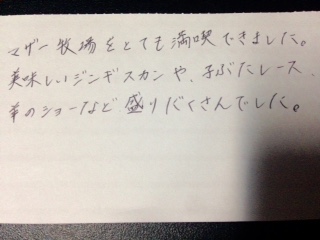 マザー牧場をとても満喫できました。
美味しいジンギスカンや、子ぶたレース、
羊のショーなど盛りだくさんでした。